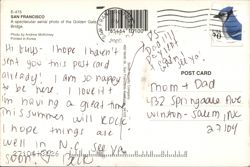 E-415
SAN FRANCISCO
A spectacular aerial photo of the Golden Gate
Bridge.
Photo by Andrew McKinney
Printed in Korea
Hi guys- I hope I haven't
sent you this postcard
already! I am so happy
to be here. I love it!
I'm having a great time.
This summer will ROCK.
I hope things are
well in N.C. see ya
soon!
POST CARD
Mom + Dad
432 Springdale Ave
Winston-Salem, NC
27104